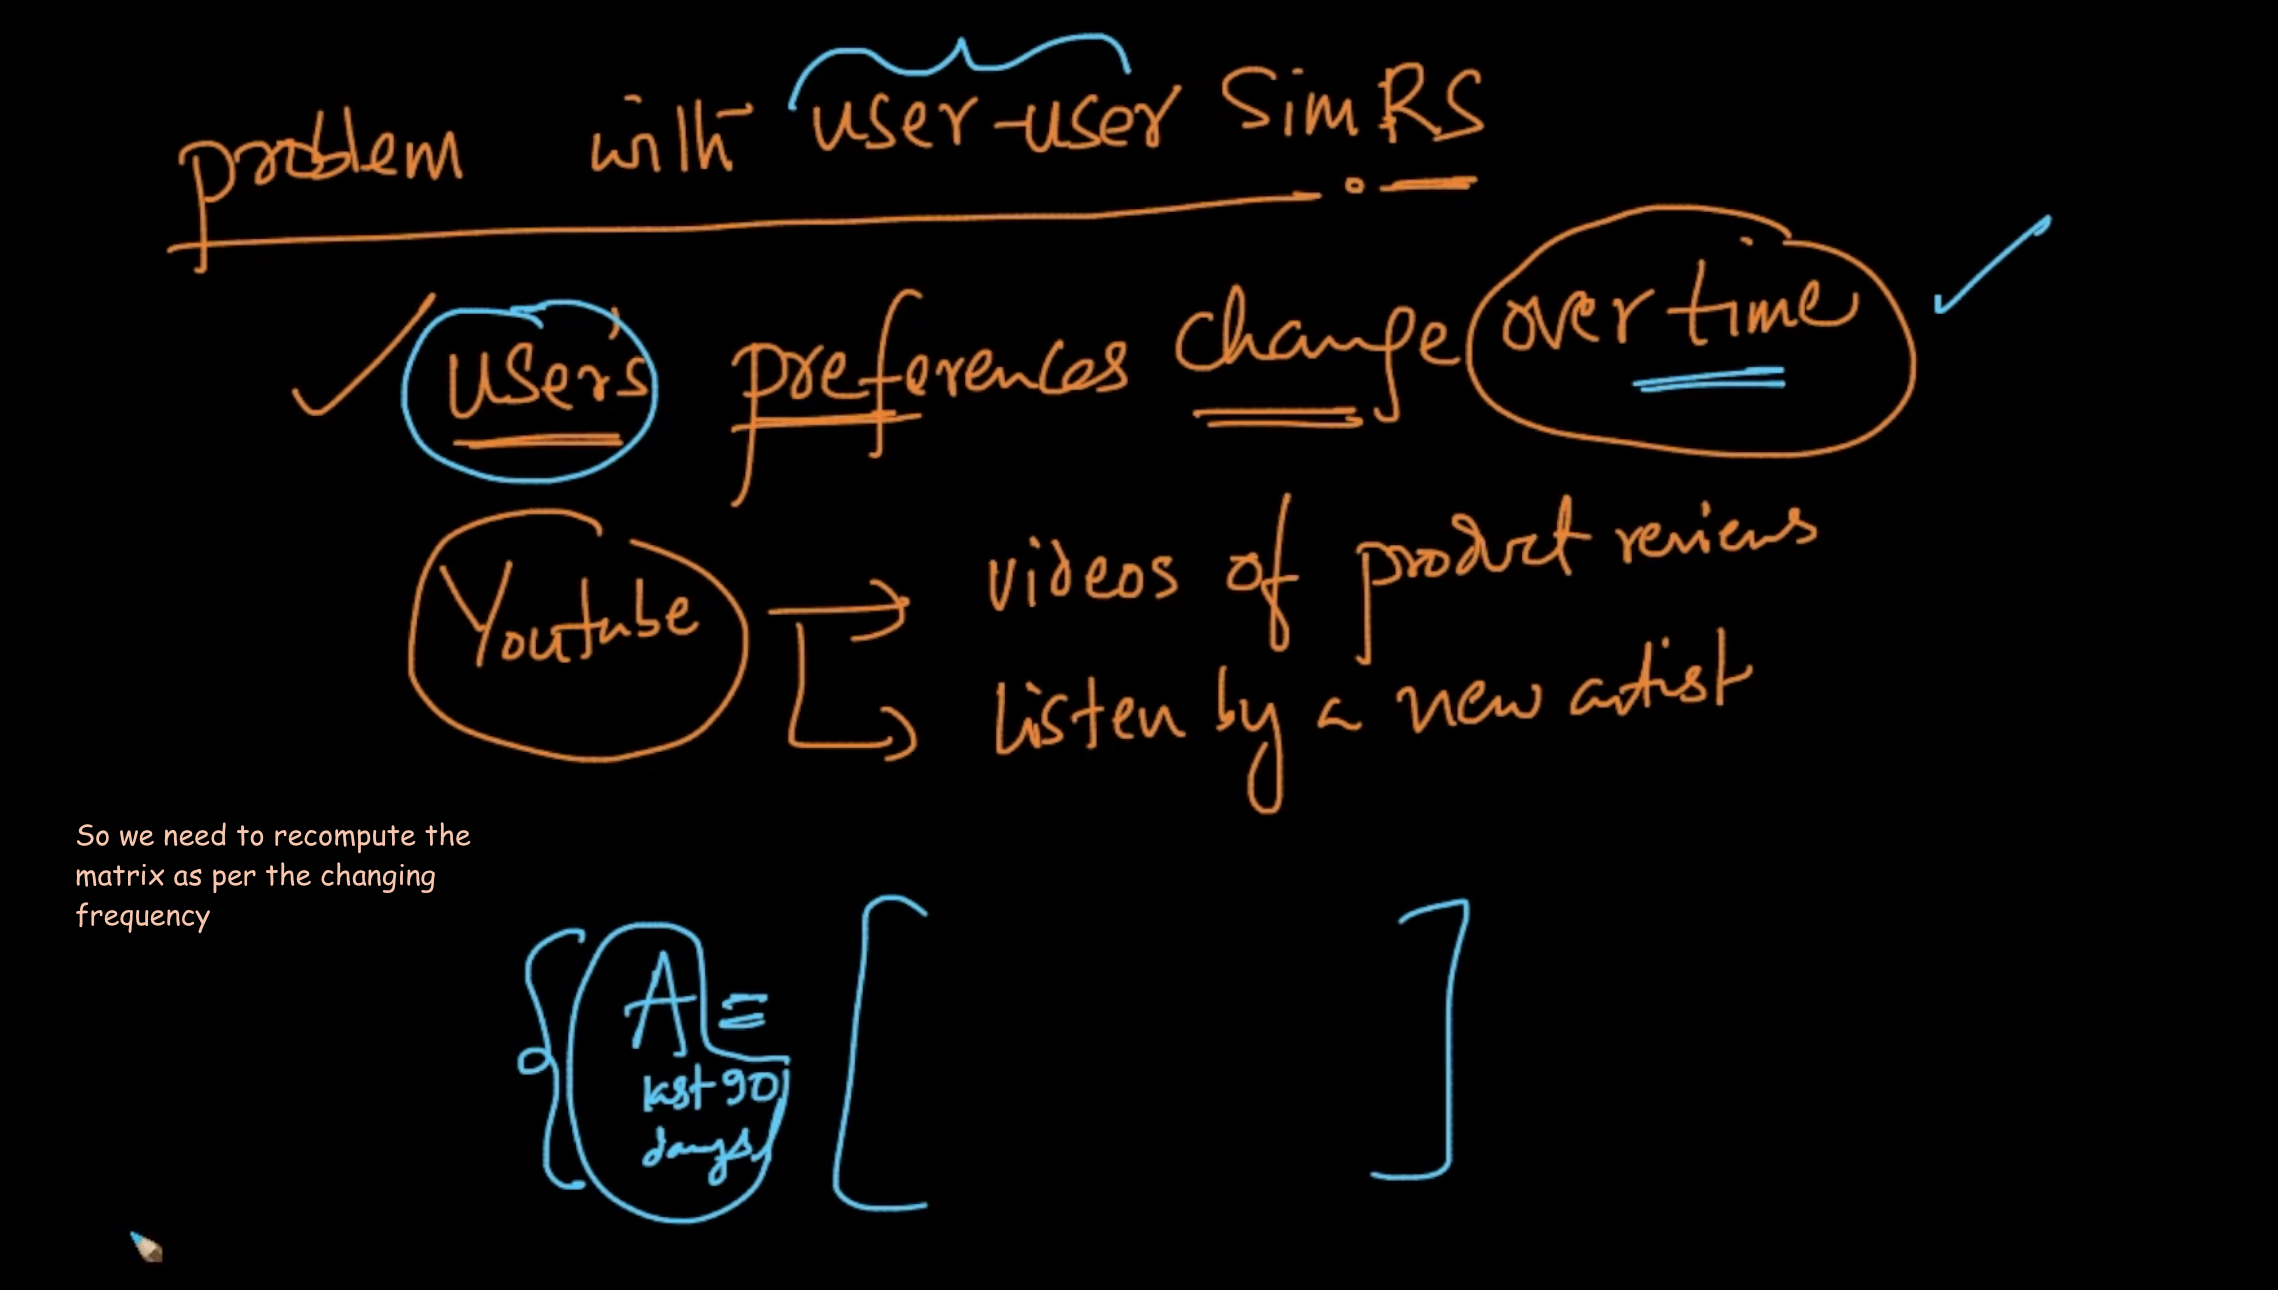 problem with user-user Sim RS
User's preferences change over time
Youtube → videos of product reviews
listen by a new artist
So we need to recompute the
matrix as per the changing
frequency
A =
last 90
days